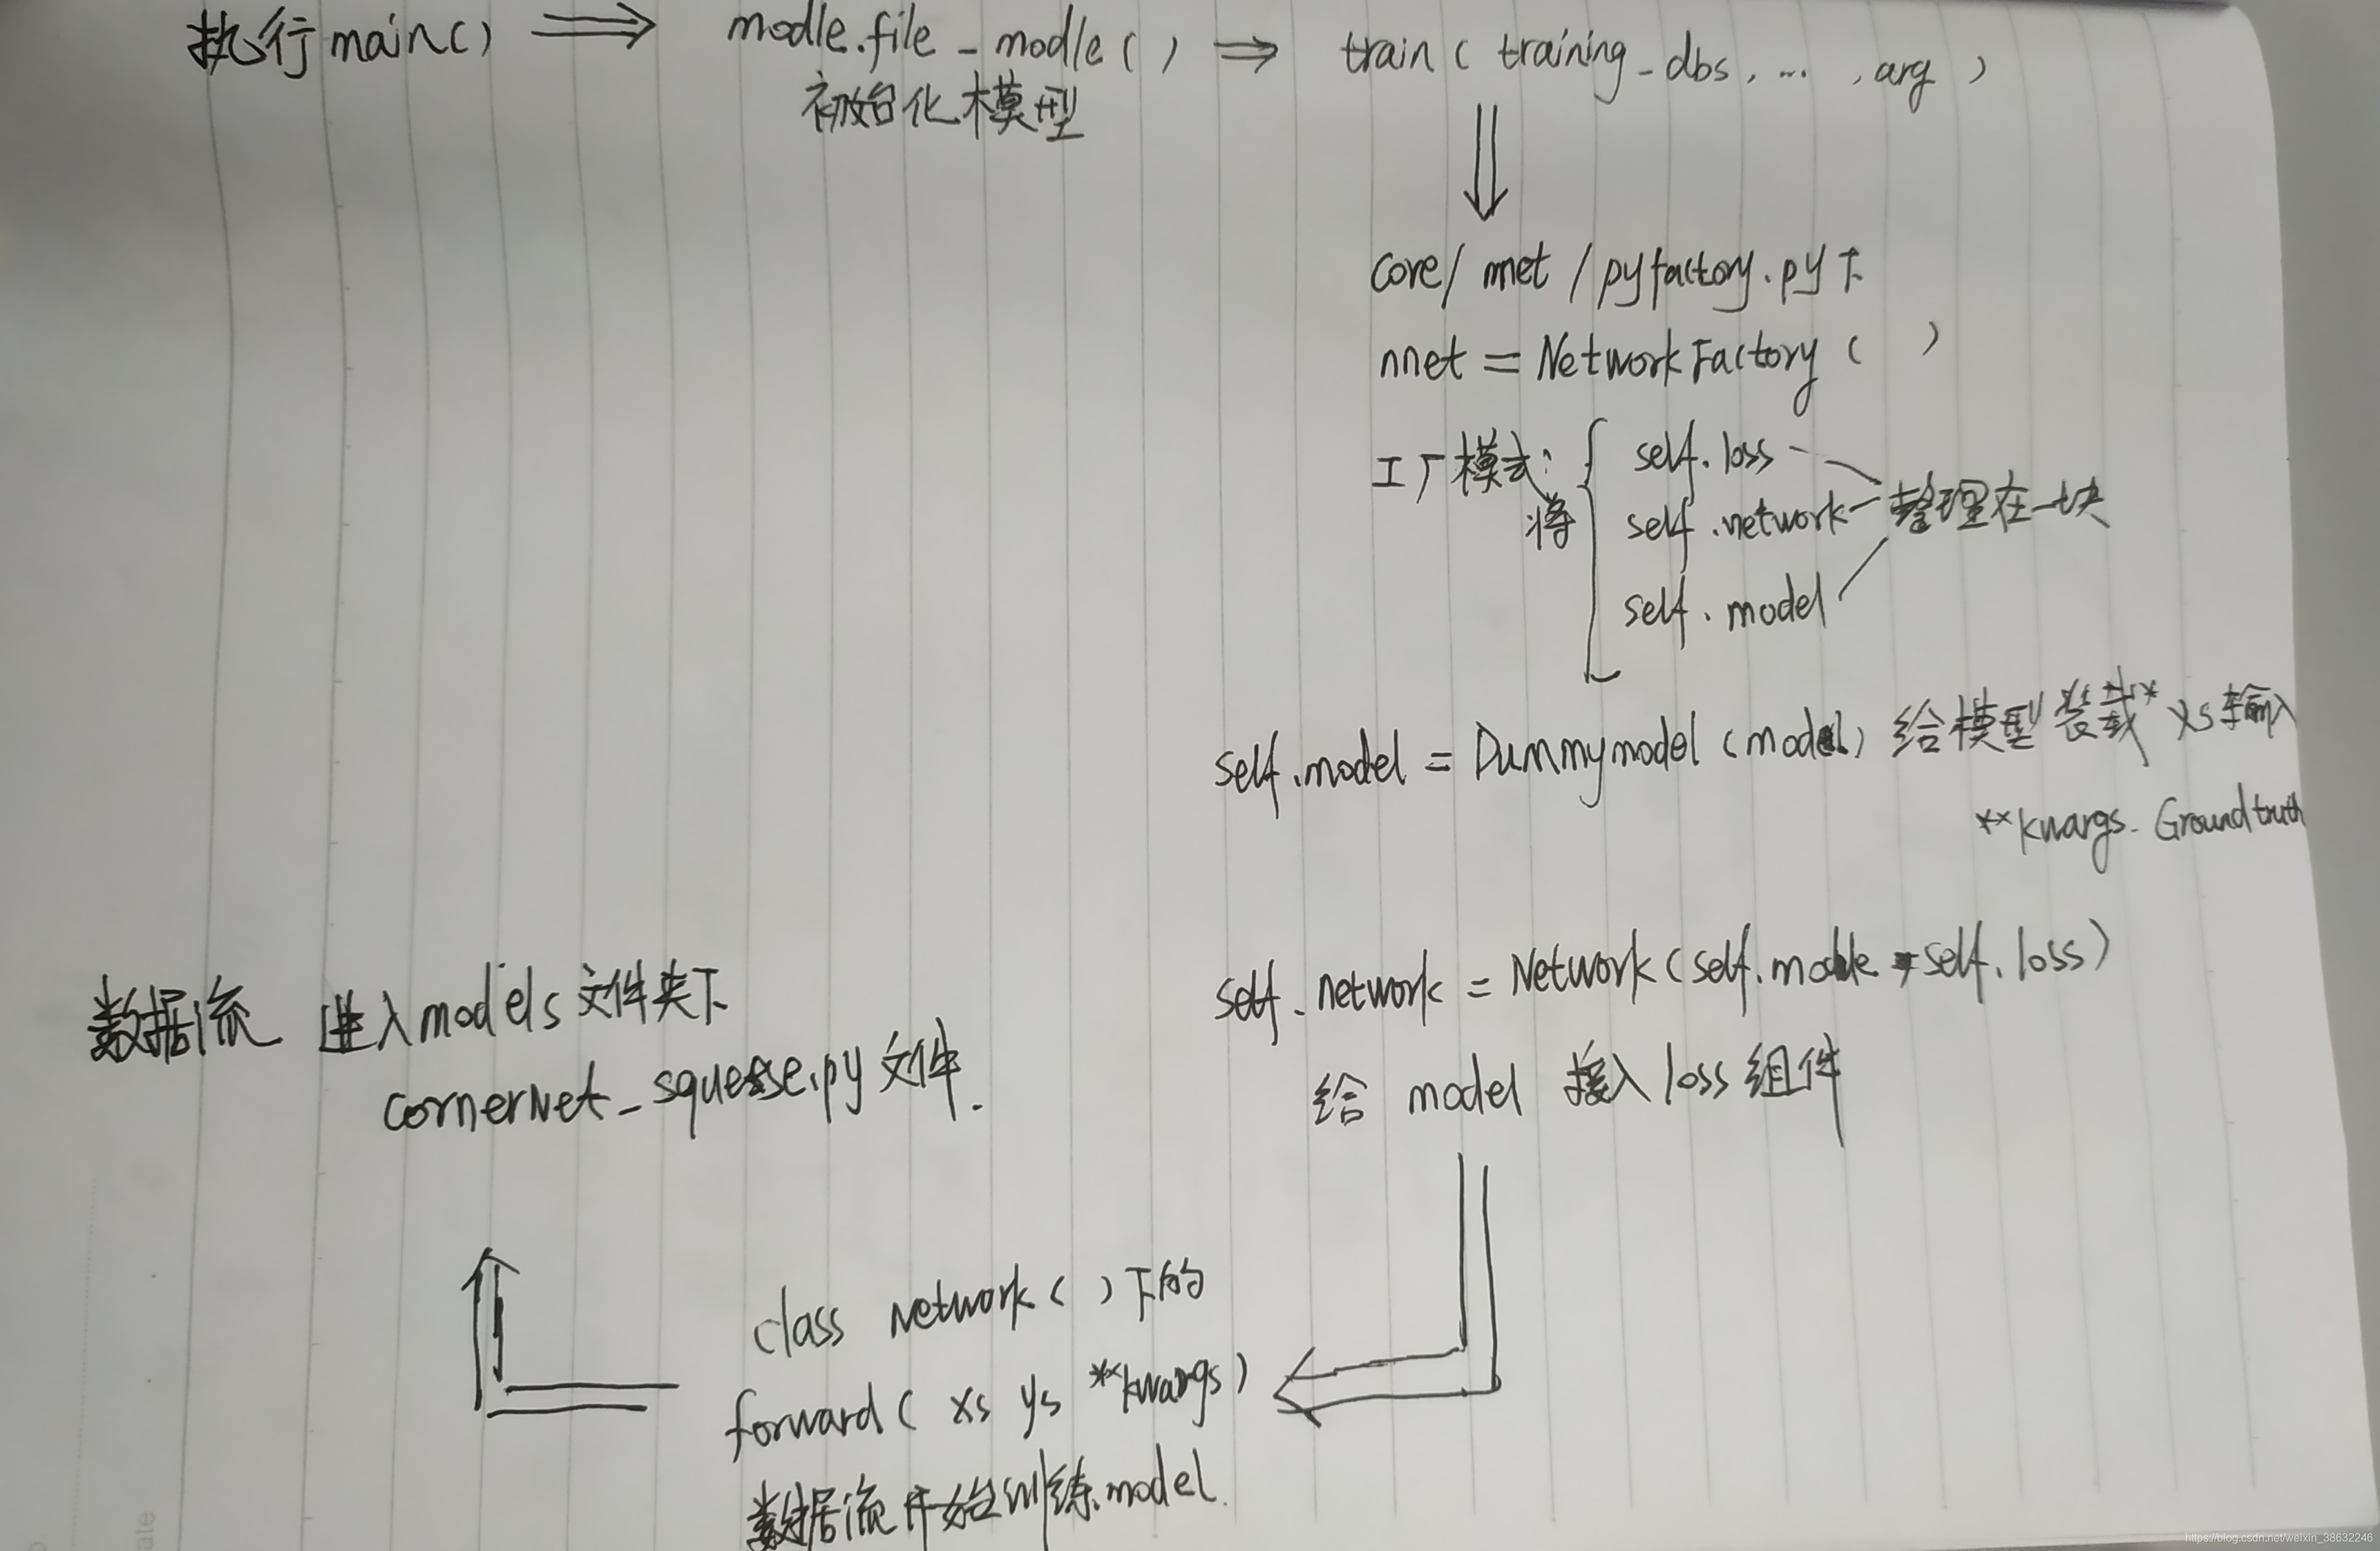 执行main() ⇒ modle.file_modle() ⇒ train( training_dbs, ... , arg )
初始化模型
core/ nnet / pyfactory.py下
nnet = NetworkFactory ( )
工厂模式:
将 { self.loss
self.network
self.model
整理在一块
self.model = Dummymodel (model) 给模型装载 *xs输入
**kwargs. Groundtruth
self.network = Network(self.modle, self.loss)
给 model 接入 loss 组件
class Network ( ) 下的
forward( xs ys **kwargs)
数据流开始训练model.
数据流 进入models文件夹下
cornerNet_squeese.py 文件.
https://blog.csdn.net/weixin_38632246